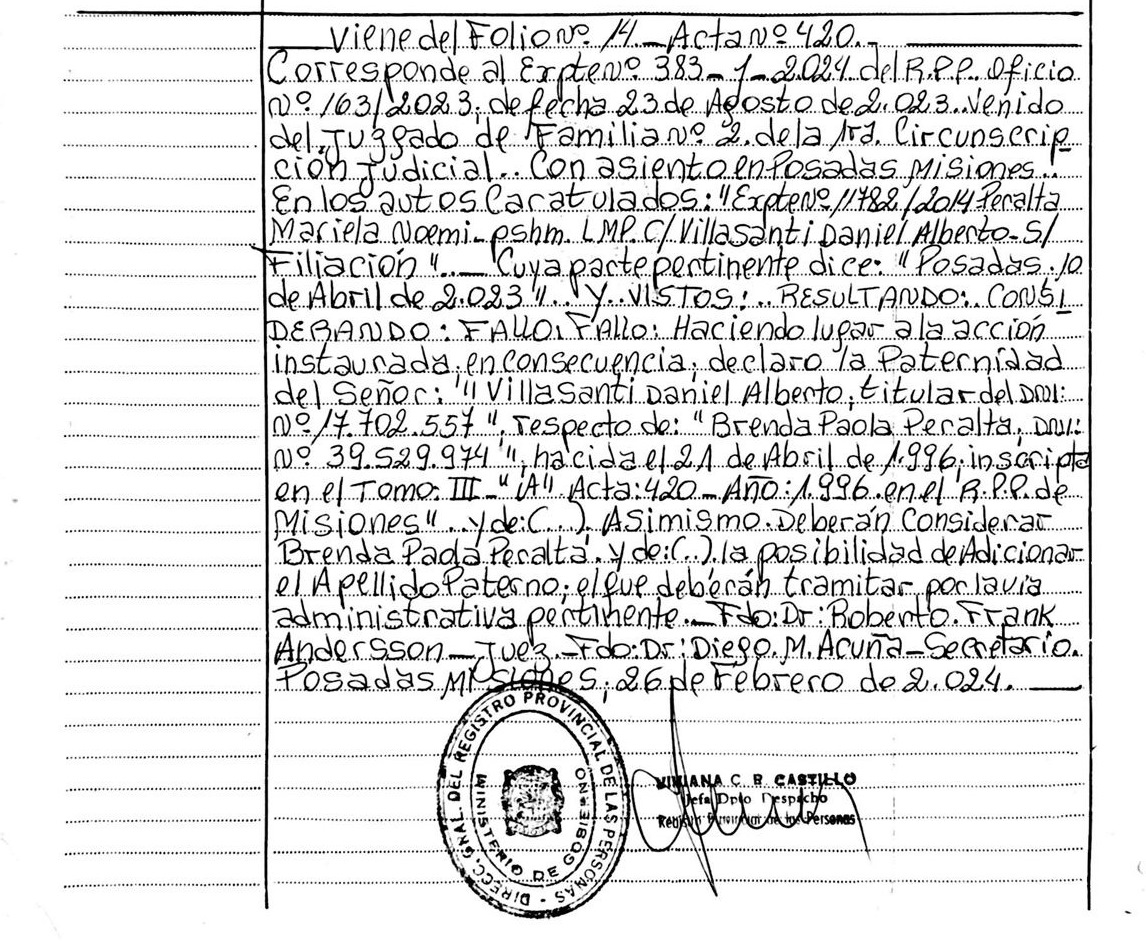 Viene del Folio Nº 14 - Acta Nº 420.-
Corresponde al Expte Nº 383-1-2.024 del R.P.P. Oficio
Nº 163/2023; de fecha 23 de Agosto de 2.023. Venido
del Juzgado de Familia Nº 2. de la 1ra. Circunscrip_
ción Judicial.. Con asiento en Posadas Misiones..
En los autos Caratulados: "Expte Nº 11782/2014 Peralta
Mariela Noemi - pshm. LMP. C/ Villasanti Daniel Alberto - S/
Filiación".- Cuya parte pertinente dice: "Posadas. 10
de Abril de 2.023"... Y... VISTOS:.. RESULTANDO:.. CONSI_
DERANDO: FALLO: Fallo: Haciendo lugar a la acción
instaurada; en consecuencia; declaro la Paternidad
del Señor: "Villasanti Daniel Alberto; titular del DNI:
Nº 17.702.557", respecto de: "Brenda Paola Peralta; DNI:
Nº 39.529.974", nacida el 21 de Abril de 1.996; inscripta
en el Tomo: III - "A" Acta: 420 - Año: 1.996 en el R.P.P. de
Misiones"... y de: (...). Asimismo. Deberán Considerar
Brenda Paola Peralta. y de: (...). la posibilidad de Adicionar
el Apellido Paterno; el que deberán tramitar por la vía
administrativa pertinente.- Fdo: Dr: Roberto. Frank
Andersson - Juez.- Fdo: Dr: Diego. M. Acuña - Secretario.
Posadas Misiones; 26 de Febrero de 2.024.
DIRECC. GNAL. DEL REGISTRO PROVINCIAL DE LAS PERSONAS -
MINISTERIO DE GOBIERNO
VIVIANA C. B. CASTILLO
Jefa Dpto Despacho
Registro Provincial de las Personas